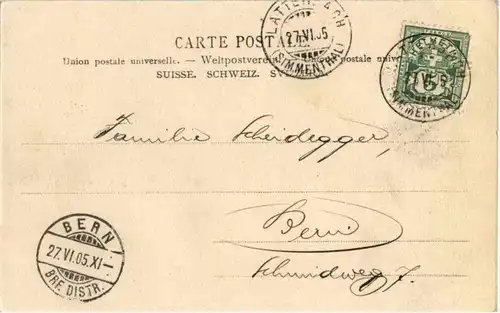 LATTERBACH
27.VI.05
(SIMMENTHAL)
CARTE POSTALE.
Union postale universelle. — Weltpostverein. postale universelle
SUISSE. SCHWEIZ.
LATTERBACH
VI.05
(SIMMENTHAL)
5
Familie Scheidegger,
Bern
Schmidweg 7.
BERN
27.VI.05.XI-
BRF. DISTR.